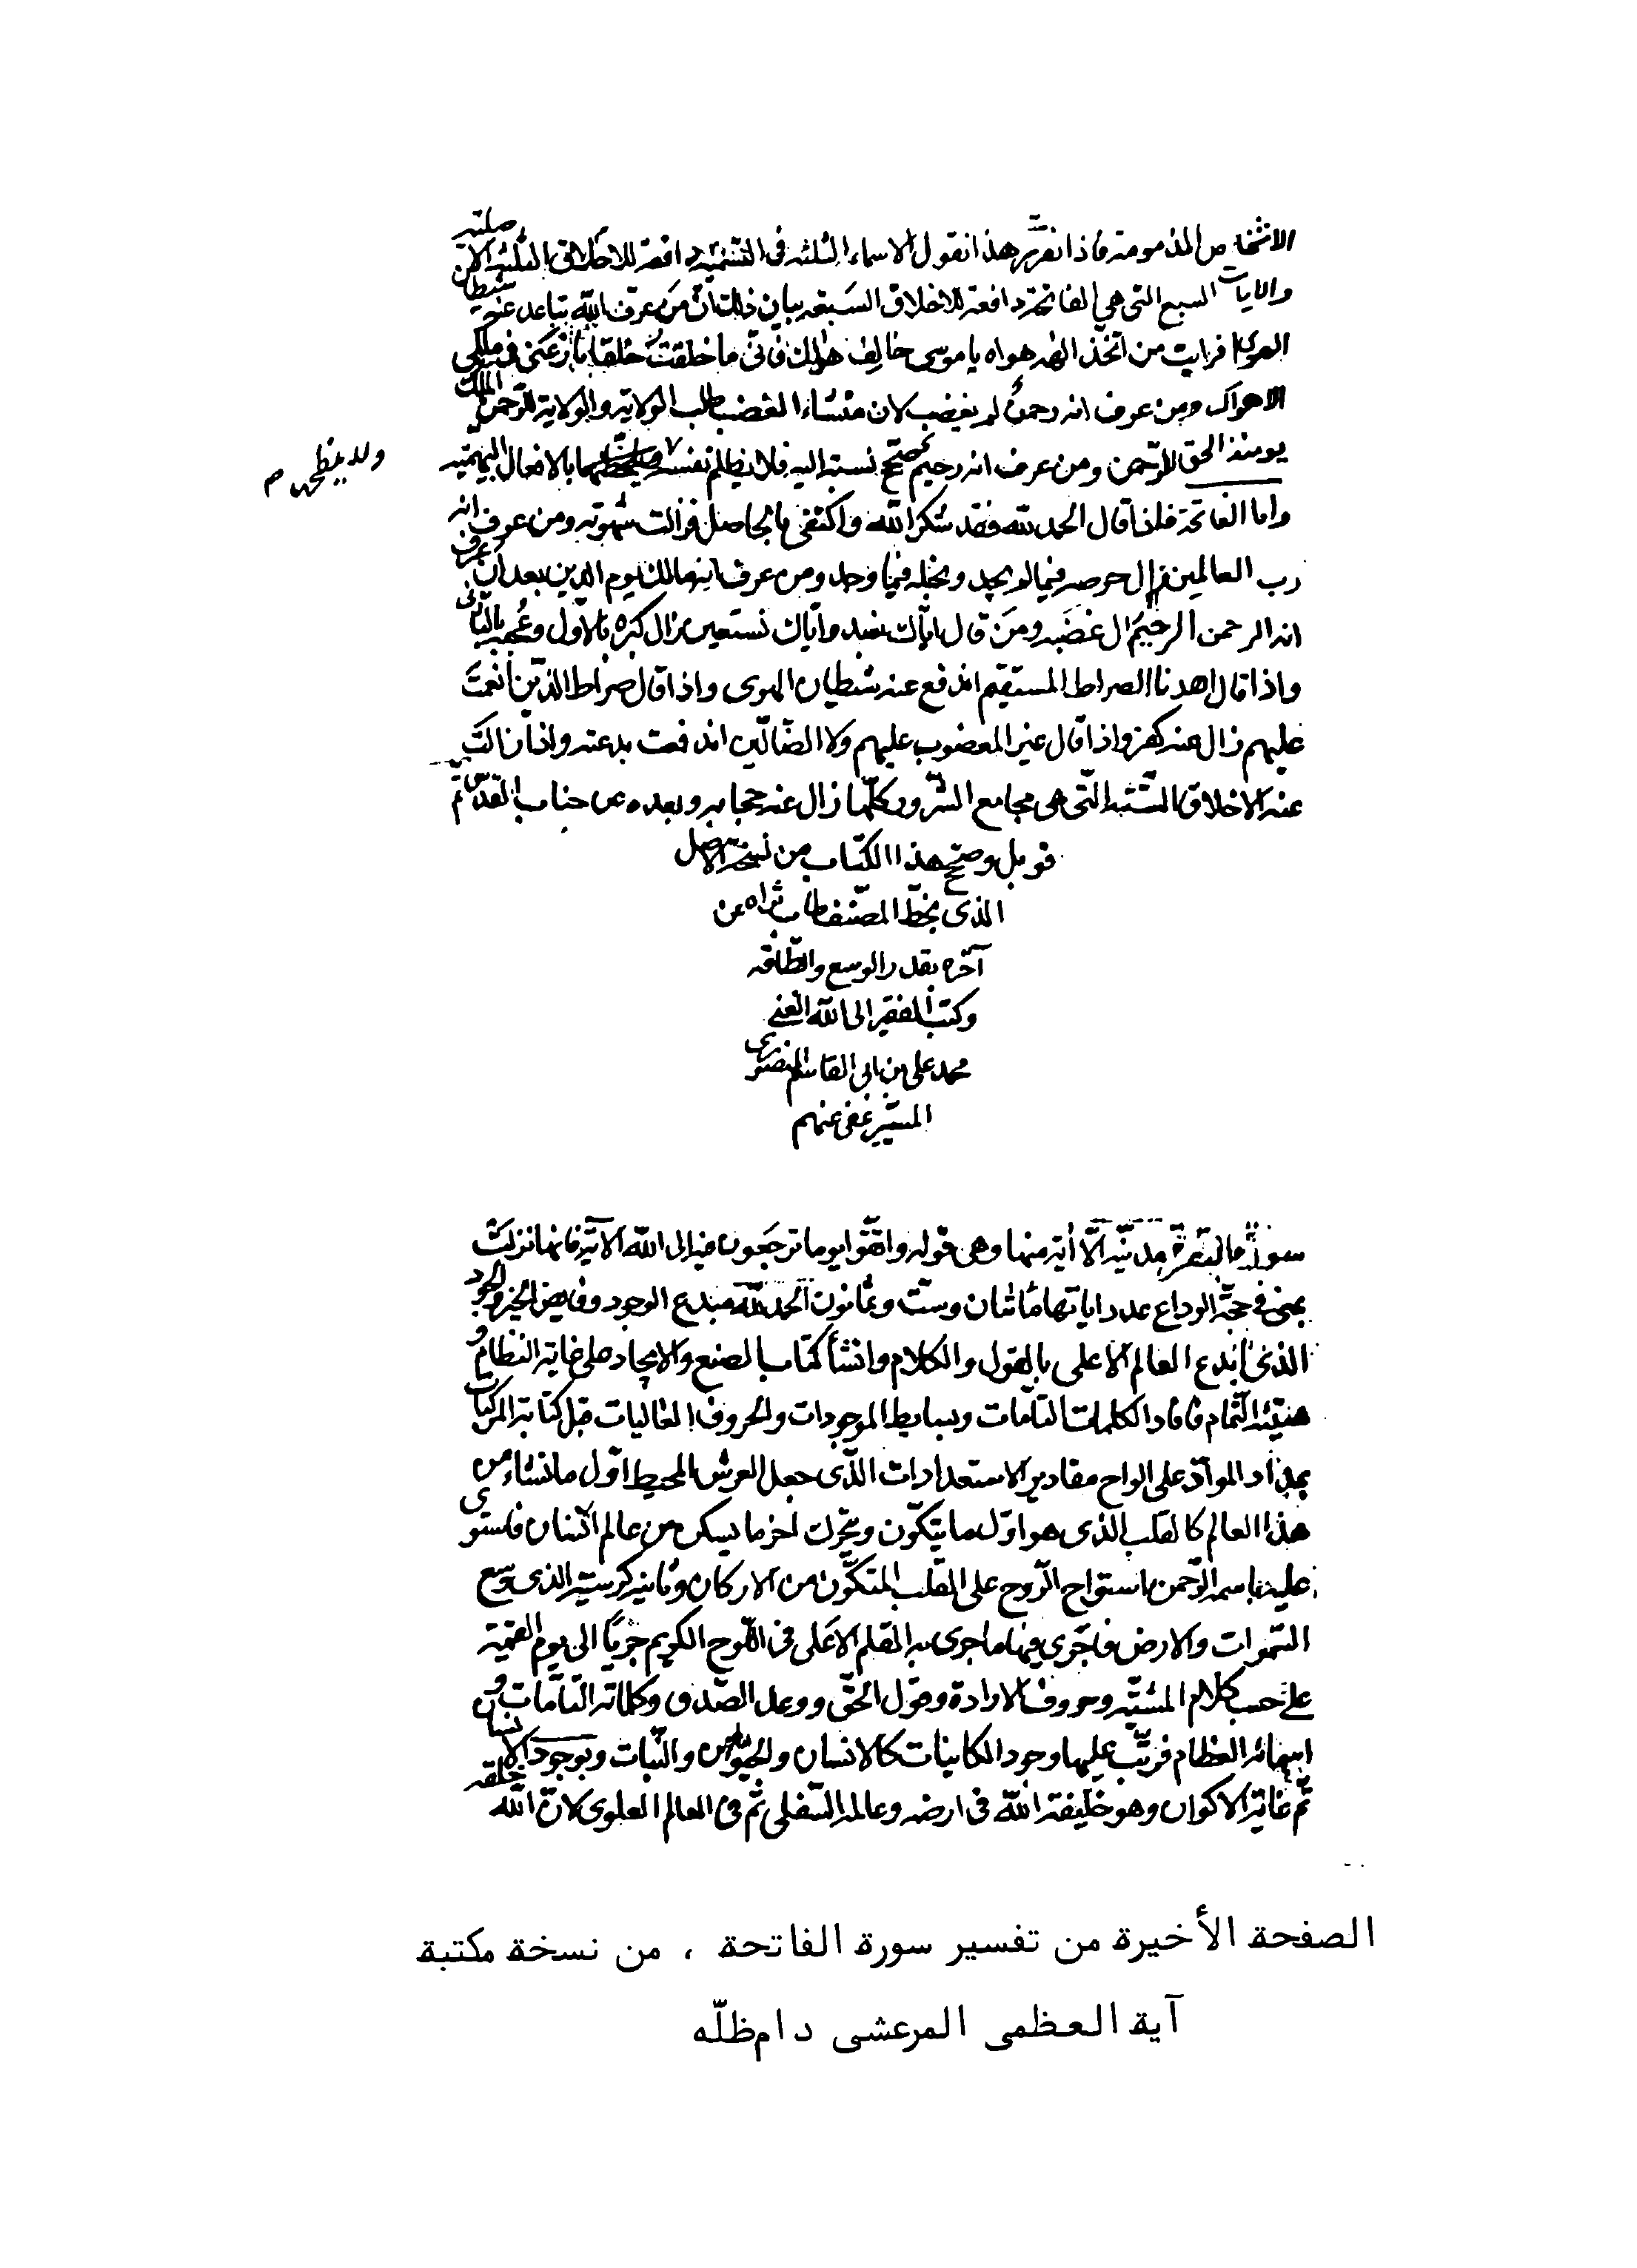 الاشخاص المذمومة فاذا تقرر هذا نقول الاسماء الثلثة فى التسمية دافعة للاخلاق الثلثة الاصلية
والايات السبع التى هى الفاتحة دافعة للاخلاق السبعة بيان ذلك ان من عرف الله تباعد عنه شيطان
الهوى افرايت من اتخذ الهه هواه يا موسى خالف هواك فانى ما خلقت خلقا نازعنى فى ملكى
الا هواك ومن عرف انه رحمن لم يغضب لان منشاء الغضب طلب الولاية والولاية للرحمن الملك
يومئذ الحق للرحمن ومن عرف انه رحيم صحح نسبته اليه فلا يظلم نفسه بالافعال البهيمية
ولا يلطخها م
واما الفاتحة فلذا قال الحمد لله فقد شكر الله واكتفى بالحاصل فزالت شهوته ومن عرف انه
رب العالمين زال حرصه فيما لم يجد وبخله فيما وجد ومن عرف انه مالك يوم الدين بعد ان عرف
انه الرحمن الرحيم زال غضبه ومن قال اياك نعبد واياك نستعين زال كبره بالاول وعجبه بالثانى
واذا قال اهدنا الصراط المستقيم اندفع عنه شيطان الهوى واذا قال صراط الذين انعمت
عليهم زال عنه كفره واذا قال غير المغضوب عليهم ولا الضالين اندفعت بدعته واذا زالت
عنه الاخلاق الستة التى هى مجامع الشرور كلها زال عنه حجابه وبعده عن جناب القدس تم
قوبل وصحح هذا الكتاب من نسخة الاصل
الذى بخط المصنف طاب ثراه عن
آخره بقدر الوسع والطاقه
وكتب الفقير الى الله الغنى
محمد على بن ابى القاسم
عفى عنهم
سورة البقرة مدنية الا آية منها وهى قوله واتقوا يوما ترجعون فيه الى الله الآية فانها نزلت
بمنى فى حجة الوداع عدد اياتها مائتان وست وثمانون الحمد لله مبدع الوجود وفايض الخير والجود
الذى ابدع العالم الاعلى بالقول والكلام وانشأ كتاب الصنع والايجاد على غاية النظام و
هيئة التمام فافاد الكلمات التامات وبسايط الموجودات والحروف العاليات قبل كتابة المركبات
بمداد المواد على الواح مقادير الاستعدادات الذى جعل العرش المحيط اول ما نشاء من
هذا العالم كالقلب الذى هو اول ما يتكون ويتحرك اخر ما يسكن من عالم فاستوى
عليه باسمه الرحمن استواء الروح على القلب المتكون من الاركان وثانيه كرسيه الذى وسع
السموات والارض فاجرى فيها ما جرى به القلم الاعلى فى اللوح الكريم جريا الى يوم القيمة
على حسب كلام المشية وحروف الارادة وقول الحق ووعد الصدق وكلماته التامات و
اسمائه العظام فرتب عليها وجود الكاينات كالانسان والحيوان والنبات وبوجود الانسان
تم غاية الاكوان وهو خليفة الله فى ارضه وعالمه السفلى ثم فى العالم العلوى لان الله خلقه
الصفحة الأخيرة من تفسير سورة الفاتحة ، من نسخة مكتبة
آية العظمى المرعشى دام ظلّه